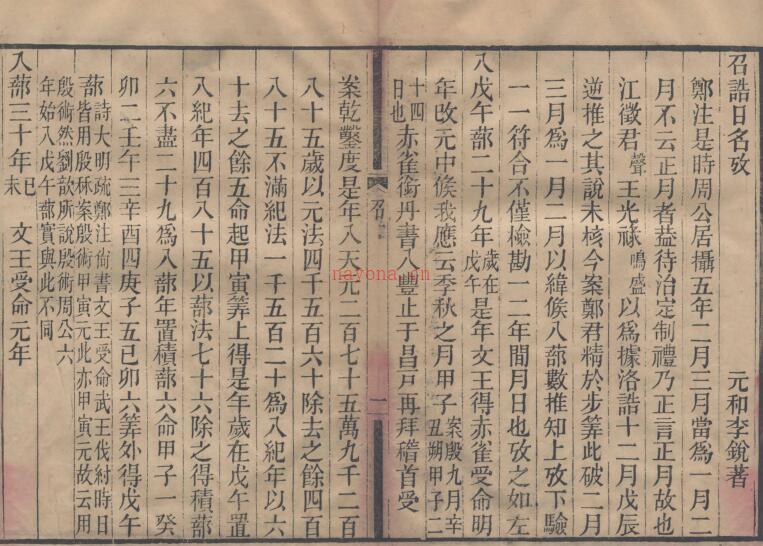 召誥日名攷
元和李銳著
鄭注是時周公居攝五年二月三月當爲一月二
月不云正月者葢待治定制禮乃正言正月故也
江徵君聲王光祿鳴盛以爲據洛誥十二月戊辰
逆推之其說未核今案鄭君精於步筭此破二月
三月爲一月二月以緯候入蔀數推知上攷下驗
一一符合不僅檢勘一二年間月日也攷之如左
入戊午蔀二十九年歲在戊午是年文王得赤雀受命明
年改元中候我應云季秋之月甲子案殷九月辛丑朔甲子二
十四日也赤雀銜丹書入豐止于昌戶再拜稽首受
召
一
案乾鑿度是年入天元二百七十五萬九千二百
八十五歲以元法四千五百六十除去之餘四百
八十五不滿紀法一千五百二十爲入紀年以六
十去之餘五命起甲寅筭上得是年歲在戊午置
入紀年四百八十五以蔀法七十六除之得積蔀
六不盡二十九爲入蔀年置積蔀六命甲子一癸
卯二壬午三辛酉四庚子五己卯六筭外得戊午
蔀詩大明疏鄭注尙書文王受命武王伐紂時日
皆用殷秝案殷術甲寅元此亦甲寅元故云用
殷術然劉歆所說殷術周公六
年始入戊午蔀實與此不同
入蔀三十年己未
文王受命元年
nayona.cn